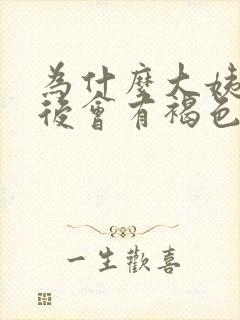 為什麼大姨
後會有褐色
一生歡喜